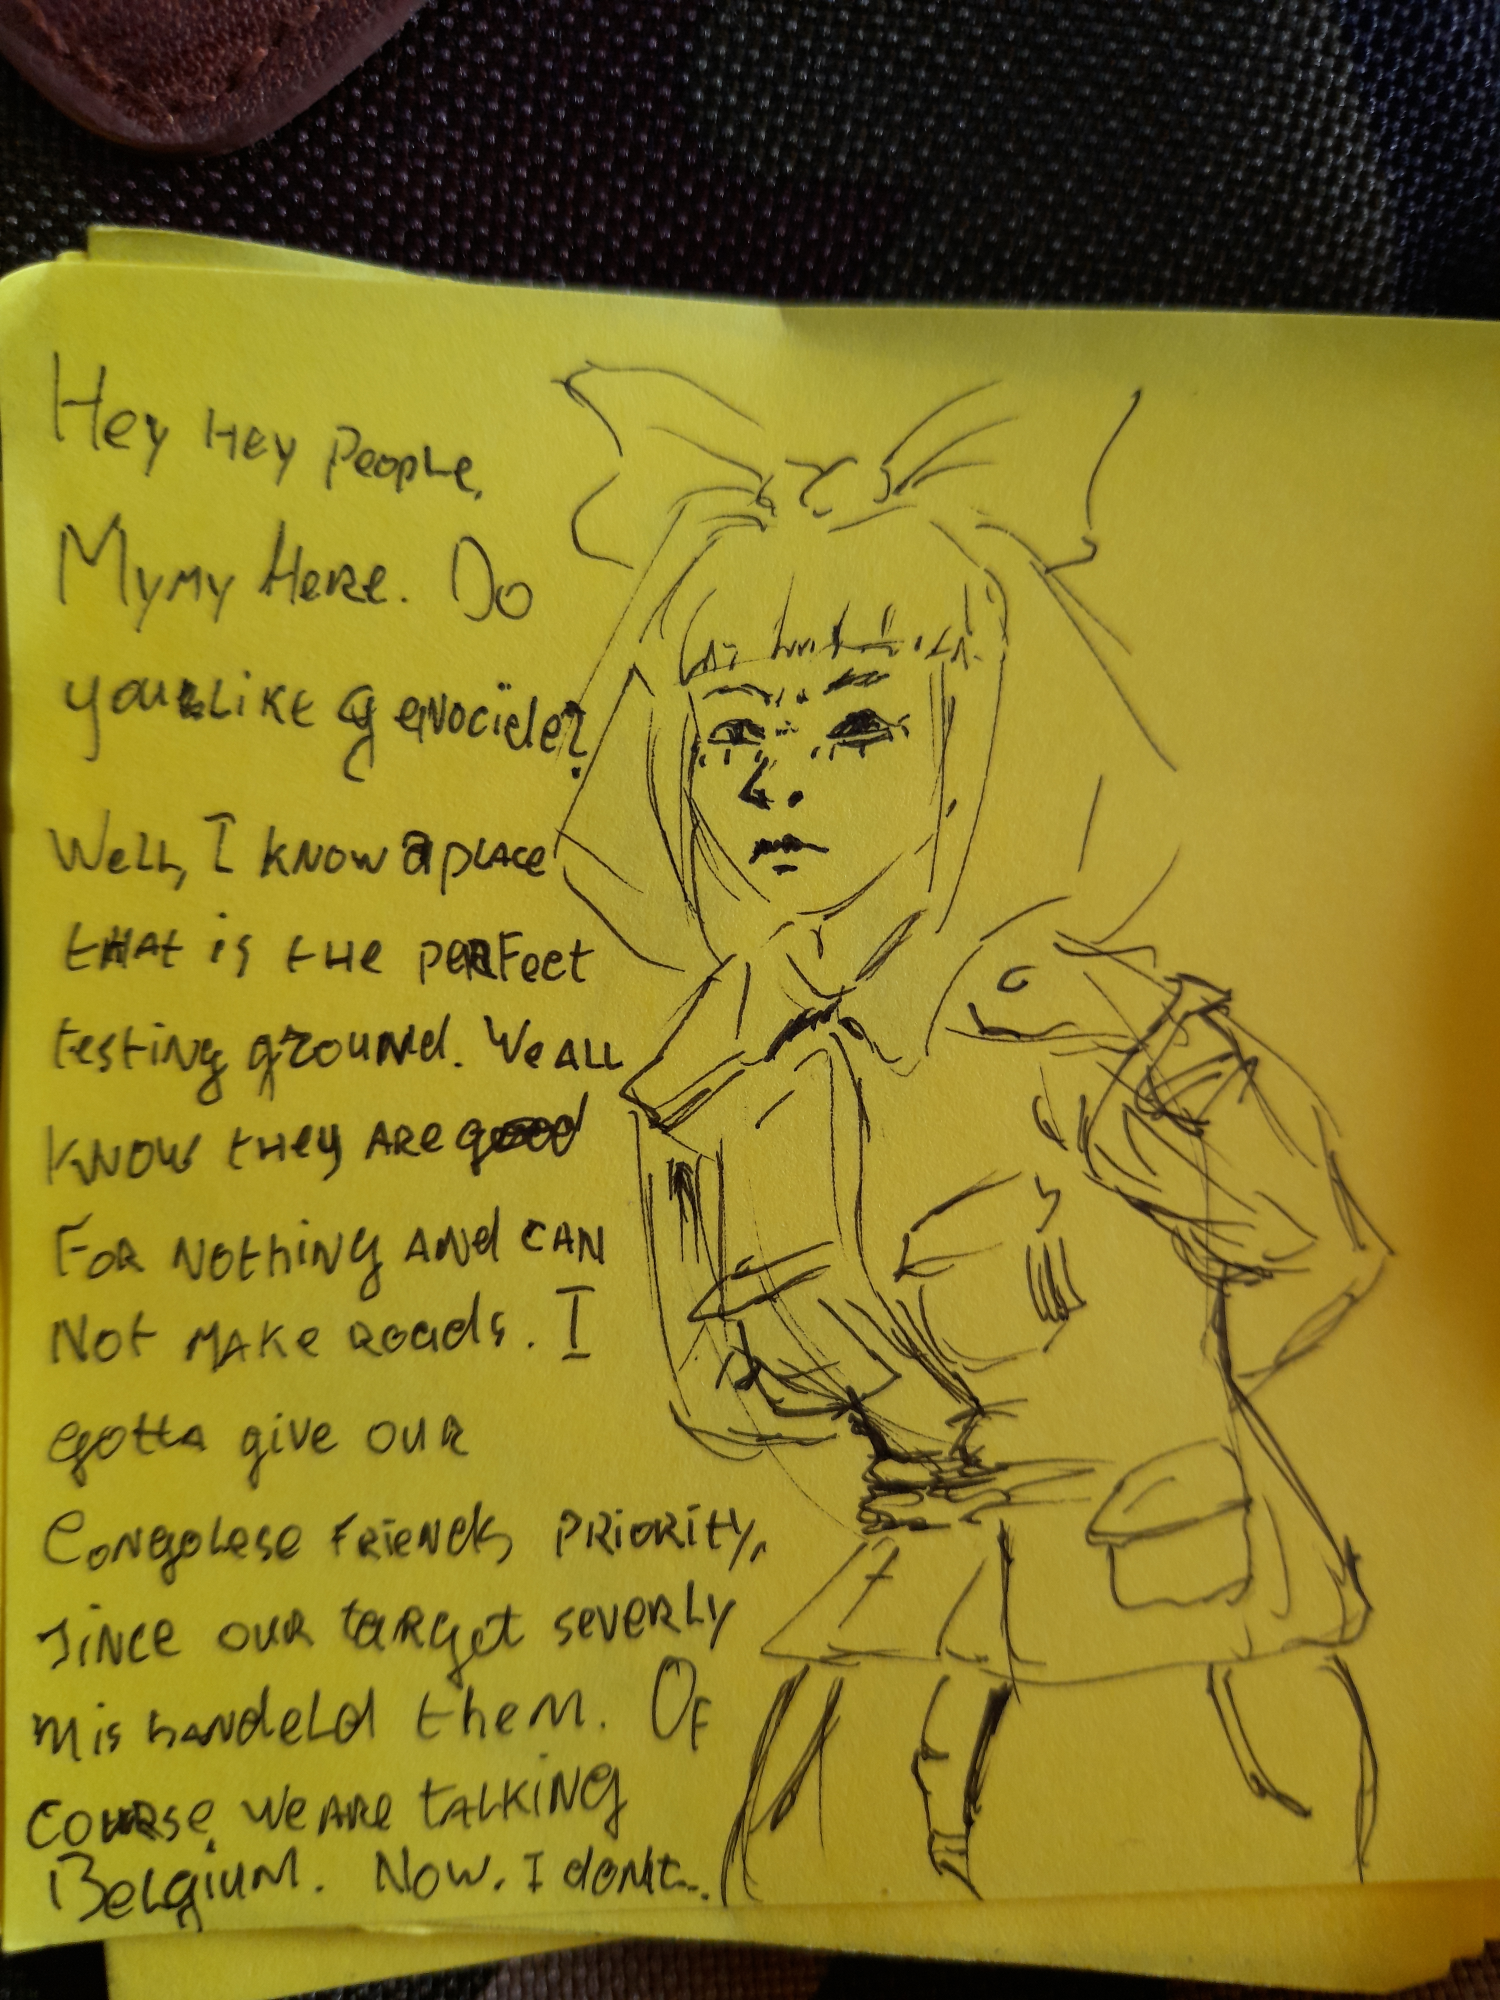 Hey Hey People,
Mymy Here. Do
you Like Genocide?
Well, I know a place
that is the perfect
testing ground. We all
know they are good
For nothing and can
not make roads. I
gotta give our
Congolese friends priority,
since our target severly
mishandeld them. Of
course we are talking
Belgium. Now, I don't...